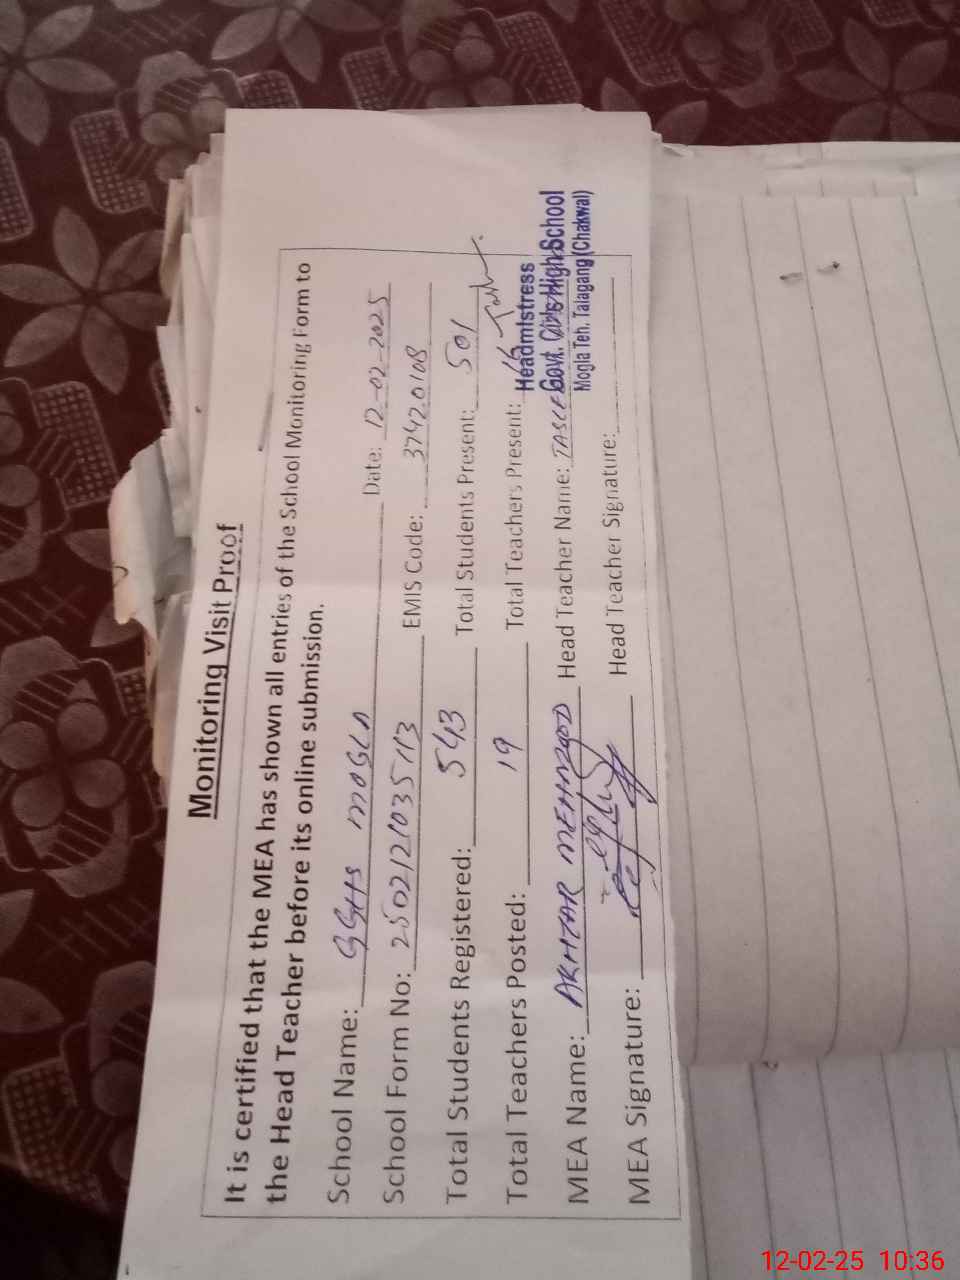 Monitoring Visit Proof
It is certified that the MEA has shown all entries of the School Monitoring Form to
the Head Teacher before its online submission.
School Name: GGHS MOGLA Date: 12-02-2025
School Form No: 25021210357113 EMIS Code: 37420108
Total Students Registered: 543 Total Students Present: 501
Total Teachers Posted: 19 Total Teachers Present: 15
MEA Name: AKHTAR MEHMOOD Head Teacher Name:
MEA Signature: Head Teacher Signature:
Headmistress
Govt. Girls High School
Mogla Teh. Talagang (Chakwal)
12-02-25 10:36